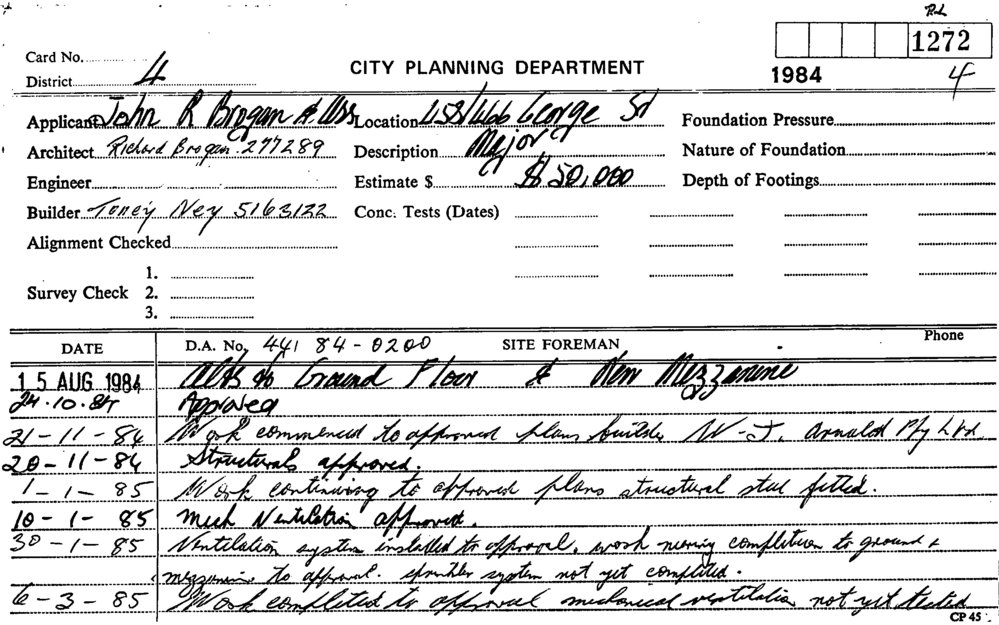 Rd.
1272
Card No.
District 4
CITY PLANNING DEPARTMENT
1984 4
Applicant John R Brogan & Ass Location 458/466 George St Foundation Pressure
Architect Richard Brogan 277289 Description Major Nature of Foundation
Engineer Estimate $ $ 50,000 Depth of Footings
Builder Toney Ney 5163122 Conc. Tests (Dates)
Alignment Checked
1.
Survey Check 2.
3.
DATE D.A. No. 441 84-0200 SITE FOREMAN Phone
15 AUG 1984 Alts to Ground Floor & New Mezzanine
24.10.84 Approved
21-11-84 Work commenced to approved plans builder W-J. Arnold Pty Ltd
20-11-84 Structurals approved.
1-1-85 Work continuing to approved plans structural steel fitted.
10-1-85 Mech Ventilation approved.
30-1-85 Ventilation system installed to approval, work nearing completion to ground &
mezzanine to approval. sprinkler system not yet completed.
6-3-85 Work completed to approval mechanical ventilation not yet tested
CP 45